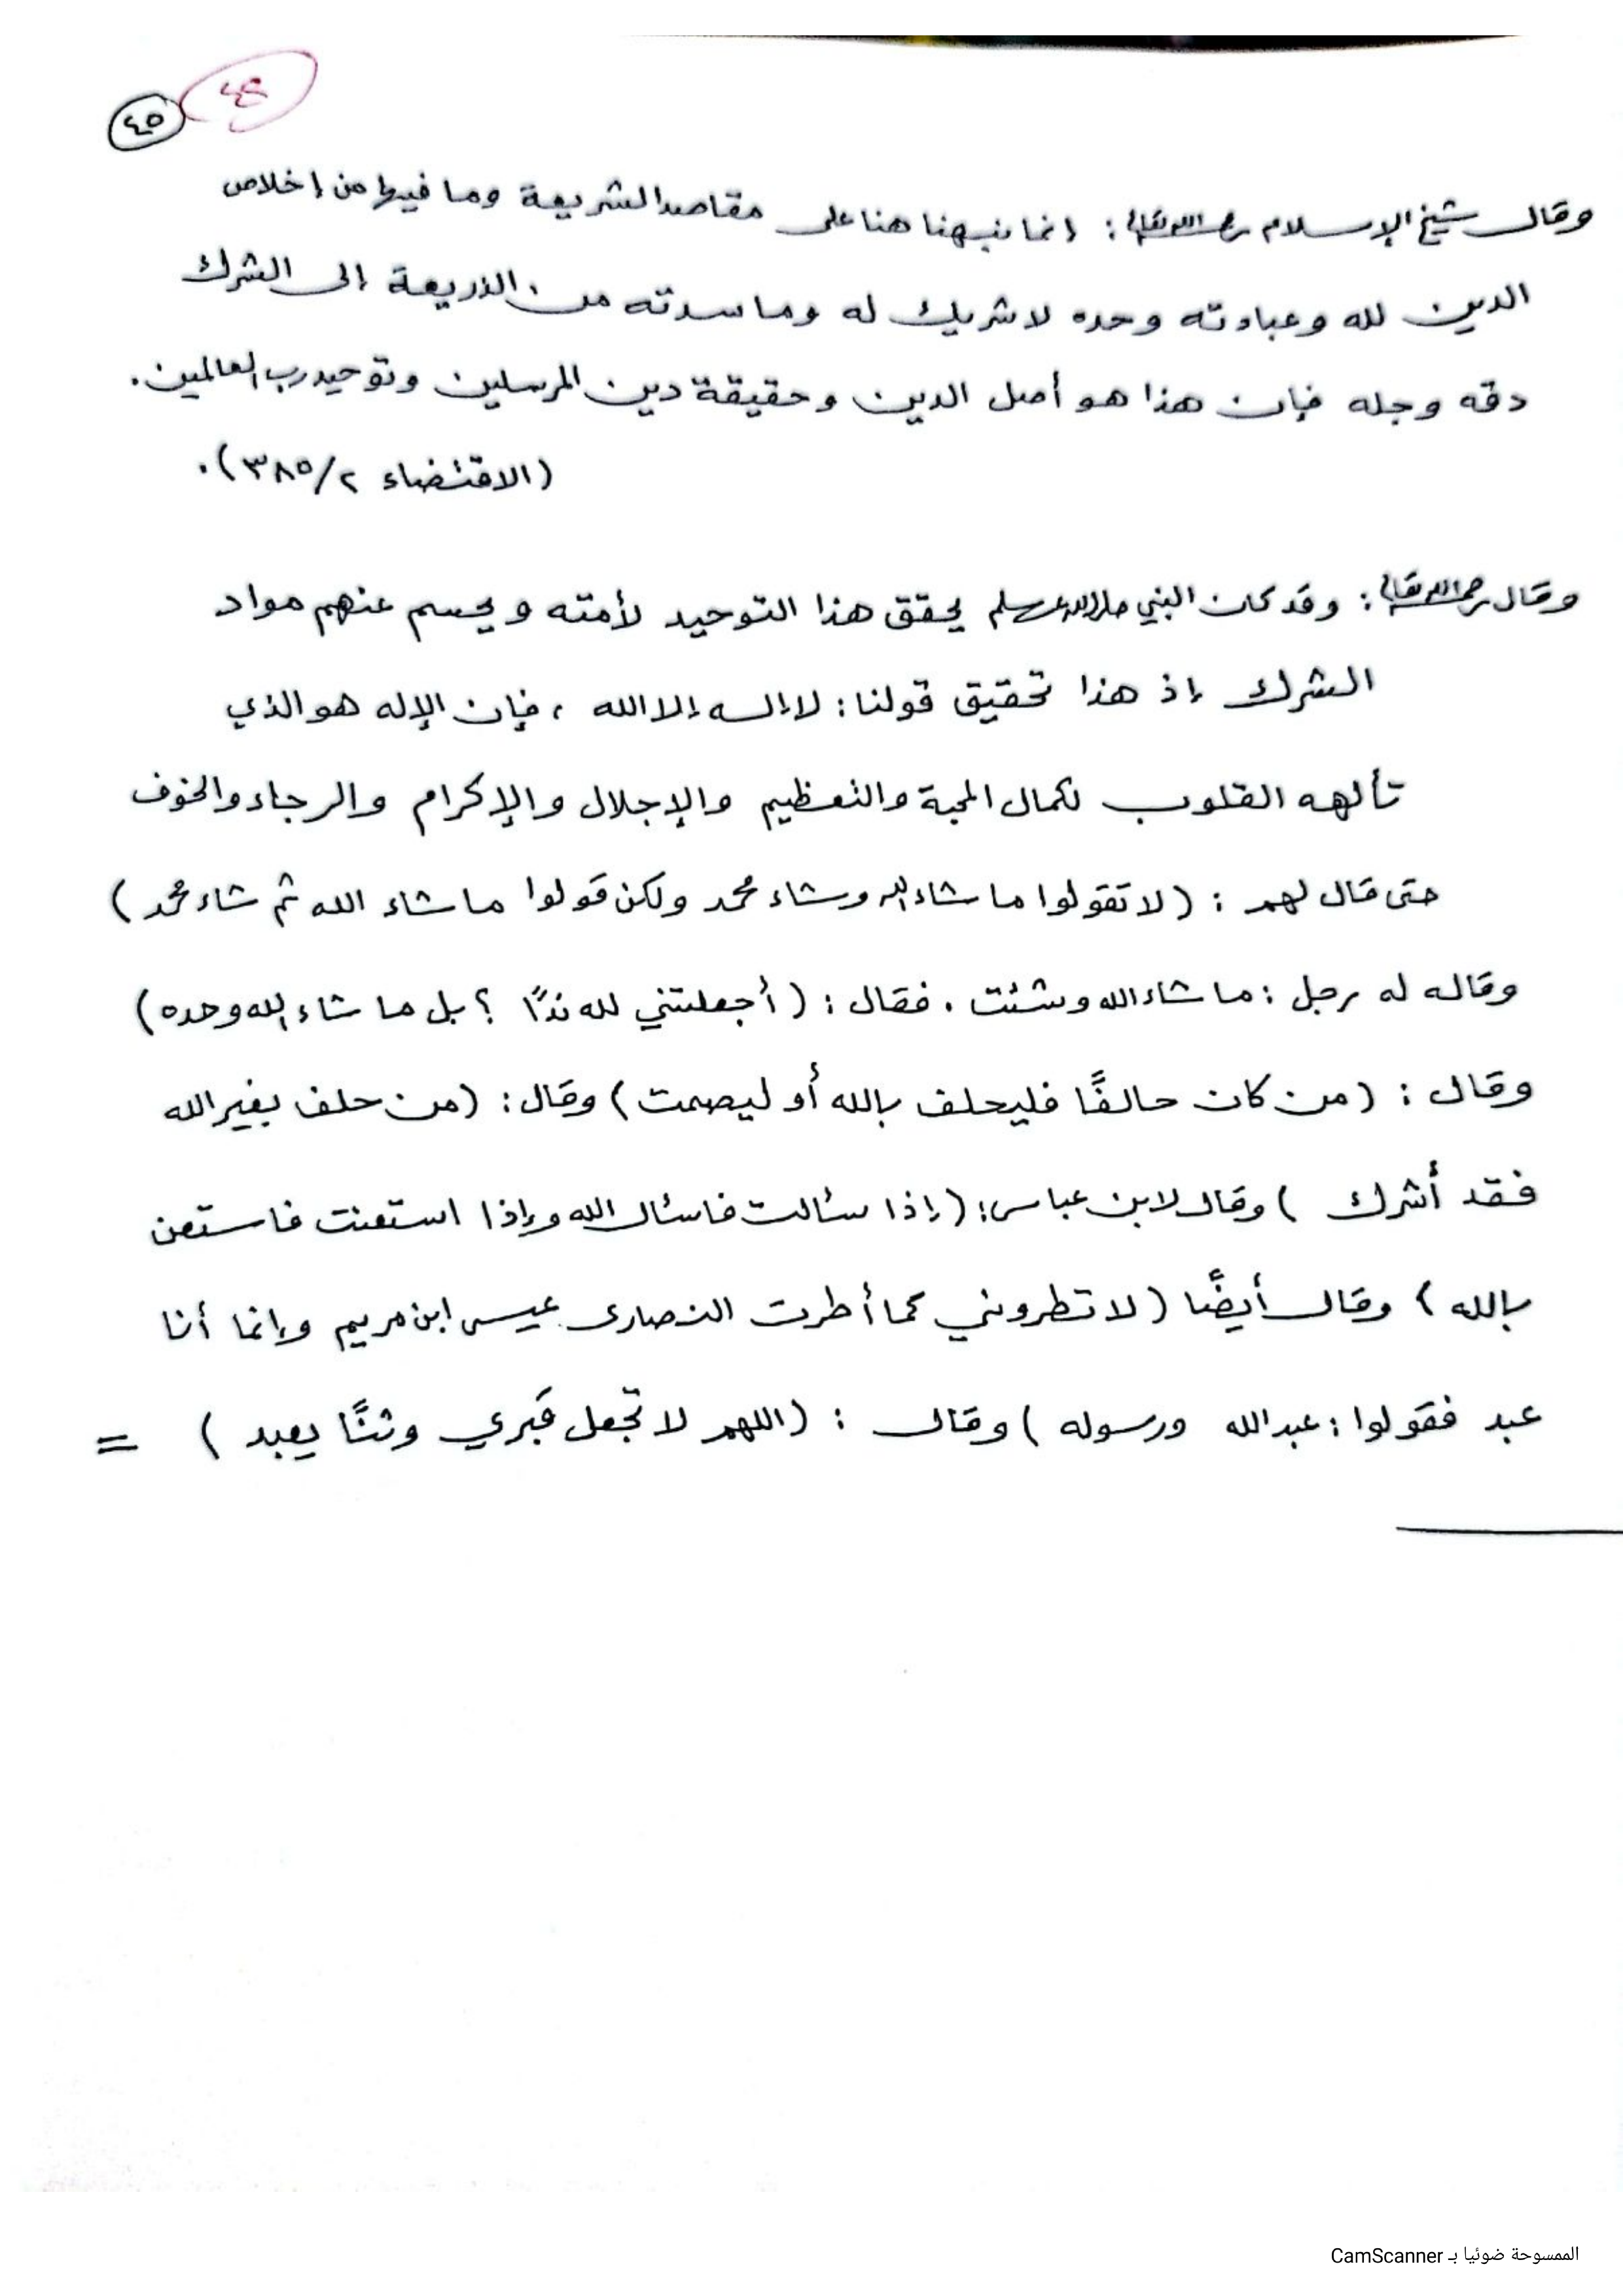 ٤٨
٤٥
وقال شيخ الإسلام رحمه الله تعالى : إنما نبهنا هنا على مقاصد الشريعة وما فيها من إخلاص
الدين لله وعبادته وحده لا شريك له وما سدته من الذريعة إلى الشرك
دقه وجله فإن هذا هو أصل الدين وحقيقة دين المرسلين وتوحيد رب العالمين .
(الاقتضاء ٢/٣٨٥) .
وقال رحمه الله تعالى : وقد كان النبي صلى الله عليه وسلم يحقق هذا التوحيد لأمته ويحسم عنهم مواد
الشرك إذ هذا تحقيق قولنا : لا إله إلا الله ، فإن الإله هو الذي
تألهه القلوب لكمال المحبة والتعظيم والإجلال والإكرام والرجاء والخوف
حتى قال لهم : (لا تقولوا ما شاء الله وشاء محمد ولكن قولوا ما شاء الله ثم شاء محمد)
وقاله له رجل : ما شاء الله وشئت . فقال : (أجعلتني لله ندًا ؟ بل ما شاء الله وحده)
وقال : (من كان حالفًا فليحلف بالله أو ليصمت) وقال : (من حلف بغير الله
فقد أشرك) وقال لابن عباس : (إذا سألت فاسئال الله وإذا استعنت فاستعن
بالله) وقال أيضًا (لا تطروني كما أطرت النصارى عيسى ابن مريم وإنما أنا
عبد فقولوا : عبد الله ورسوله) وقال : (اللهم لا تجعل قبري وثنًا يعبد) =
الممسوحة ضوئيا بـ CamScanner